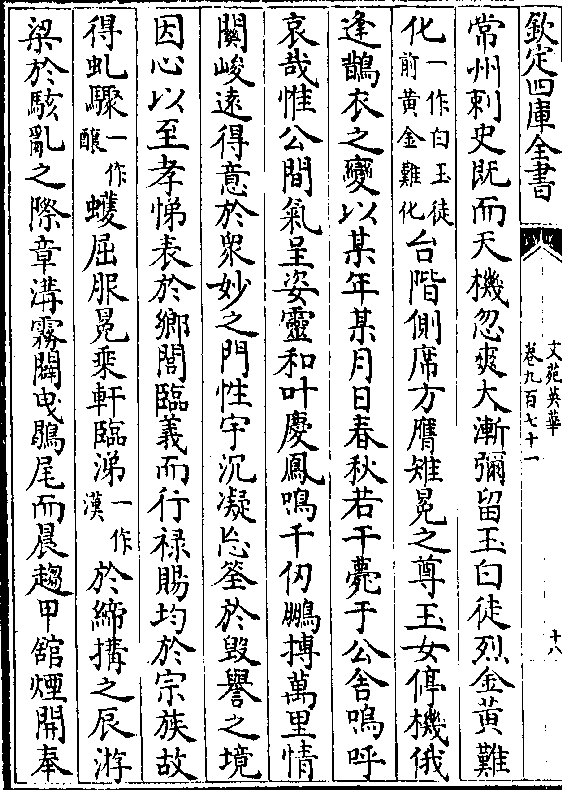 欽定四庫全書
文苑英華
卷九百七十一
十八
常州刺史既而天機忽爽大漸彌留玉臼徒烈金黄難
化一作白玉徒前黄金難化台階側席方膺雉冕之尊玉女停機俄
逢鵲衣之變以某年某月日春秋若干薨于公舎嗚呼
哀哉惟公間氣呈姿靈和叶慶鳳鳴千仞鵬摶萬里情
關峻逺得意於衆妙之門性宇沉凝忘筌於毁譽之境
因心以至孝悌表於鄉閭臨義而行禄賜均於宗族故
得虬驟一作釀蠖屈服冕乘軒臨涕一作漢於締搆之辰游
梁於駭亂之際章溝霧闢曵鶡尾而晨趨甲舘煙開奉